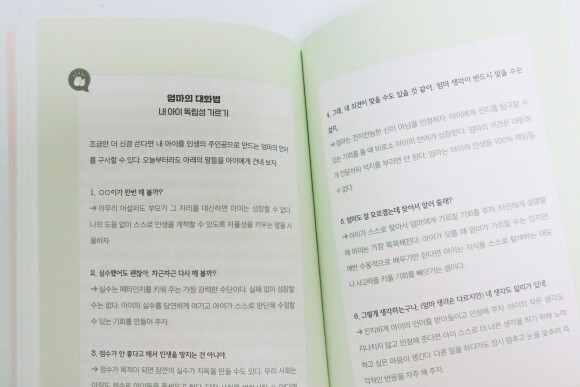 엄마의 대화법
내 아이 독립성 기르기
조금만 더 신경 쓴다면 내 아이를 인생의 주인공으로 만드는 엄마의 언어
를 구사할 수 있다. 오늘부터라도 아래의 말들을 아이에게 건네 보자.
1. ○○이가 한번 해 볼까?
→ 아무리 어설퍼도 부모가 그 자리를 대신하면 아이는 성장할 수 없다.
나의 도움 없이 스스로 인생을 개척할 수 있도록 자율성을 키우는 말을 사
용하자.
2. 실수했어도 괜찮아, 차근차근 다시 해 볼까?
→ 실수는 메타인지를 키워 주는 가장 강력한 수단이다. 실패 없이 성장할
수는 없다. 아이의 실수를 당연하게 여기고 아이가 스스로 판단해 수정할
수 있는 기회를 만들어 주자.
3. 점수가 안 좋다고 해서 인생을 망치는 건 아니야.
→ 점수가 목적이 되면 잠깐의 실수가 지옥을 만들 수도 있다. 우리 사회는
4. 그래, 네 의견이 맞을 수도 있을 것 같아. 엄마 생각이 반드시 맞을 수는
없지.
→ 엄마는 전지전능한 신이 아님을 인정하자. 아이에게 진리를 탐구할 수
있는 기회를 줄 때 비로소 아이의 언어가 성장한다. 엄마의 의견은 대등하
게 전달하되 억지를 부리면 안 된다. 엄마는 아이의 인생을 100% 책임질
수 없다.
5. 엄마도 잘 모르겠는데 찾아서 알려 줄래?
→ 아이가 스스로 찾아서 엄마에게 가르칠 기회를 주자. 타인에게 설명할
때 아이는 가장 똑똑해진다. 아이가 모를 때 엄마가 가르칠 수는 있지만
매번 수동적으로 배우기만 한다면 아이는 지식을 스스로 탐색하는 태도
나 사고력을 키울 기회를 빼앗기는 셈이다.
6. 그렇게 생각하는구나. (엄마 생각은 다르지만) 네 생각도 일리가 있네.
→ 진지하게 아이의 언어를 받아들이고 인정해 주자. 아이의 작은 생각도
지나치지 않고 인정해 준다면 아이 스스로 더 나은 생각을 하기 위해 노력
하고 싶은 마음이 생긴다. 다른 일을 하다가도 잠시 멈추고 눈을 맞추며 즉
각적인 반응을 자주 해 주자.